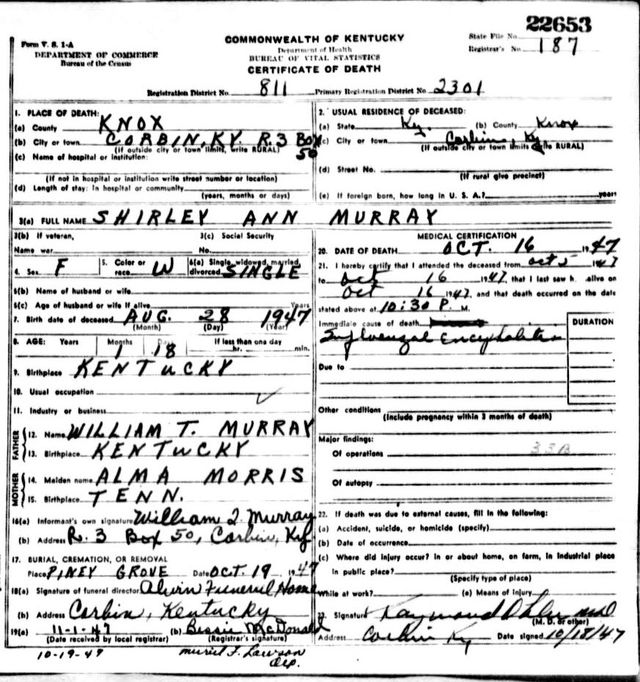 22653
Form V. S. 1-A
DEPARTMENT OF COMMERCE
Bureau of the Census
COMMONWEALTH OF KENTUCKY
Department of Health
BUREAU OF VITAL STATISTICS
CERTIFICATE OF DEATH
State File No.
Registrar's No. 187
Registration District No. 811 Primary Registration District No. 2301
1. PLACE OF DEATH:
(a) County KNOX
(b) City or town CORBIN, KY. R. 3 Box 50
(If outside city or town limits, write RURAL)
(c) Name of hospital or institution:
(If not in hospital or institution write street number or location)
(d) Length of stay: In hospital or community
(years, months or days)
2. USUAL RESIDENCE OF DECEASED:
(a) State Ky. (b) County Knox
(c) City or town Corbin, Ky
(If outside city or town limits write RURAL)
(d) Street No.
(If rural give precinct)
(e) If foreign born, how long in U. S. A.? years
3(a) FULL NAME SHIRLEY ANN MURRAY
3(b) If veteran,
Name war
3(c) Social Security
No.
4. Sex F 5. Color or race W 6(a) Single, widowed, married, divorced SINGLE
6(b) Name of husband or wife
6(c) Age of husband or wife if alive Years
7. Birth date of deceased AUG. 28 1947
(Month) (Day) (Year)
8. AGE: Years Months Days If less than one day
1 18 hr. min.
9. Birthplace KENTUCKY
10. Usual occupation
11. Industry or business
FATHER
12. Name WILLIAM T. MURRAY
13. Birthplace KENTUCKY
MOTHER
14. Maiden name ALMA MORRIS
15. Birthplace TENN.
16(a) Informant's own signature William T. Murray
(b) Address R. 3 Box 50, Corbin, Ky.
17. BURIAL, CREMATION, OR REMOVAL
Place PINEY GROVE Date OCT. 19 1947
18(a) Signature of funeral director Funeral Home
(b) Address Corbin, Kentucky
19(a) 11-1-47 (b) Bessie McDonald
(Date received by local registrar) (Registrar's signature)
10-19-47 Muriel F. Lawson
Dep.
MEDICAL CERTIFICATION
20. DATE OF DEATH OCT. 16 1947
21. I hereby certify that I attended the deceased from Oct 5 1947
to Oct 16 1947, that I last saw h alive on
Oct 16 1947, and that death occurred on the date
stated above at 10:30 P. M.
Immediate cause of death
DURATION
Influenzal Encephalitis
Due to
Other conditions
(Include pregnancy within 3 months of death)
Major findings:
Of operations
Of autopsy
22. If death was due to external causes, fill in the following:
(a) Accident, suicide, or homicide (specify)
(b) Date of occurrence
(c) Where did injury occur? In or about home, on farm, in industrial place
in public place?
(Specify type of place)
While at work? (e) Means of Injury
23. Signature Raymond
(M. D. or other)
Address Corbin Ky Date signed 10/18/47